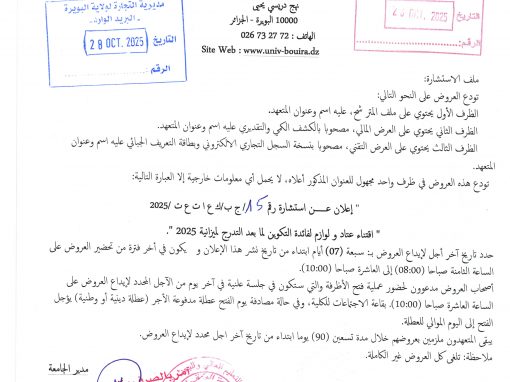 مديرية التجارة لولاية البويرة
البريد الوارد
التاريخ 28 OCT. 2025
الرقم:
نهج دريسي يحيى
10000 البويرة - الجزائر
الهاتف : 72 27 73 026
Site Web : www.univ-bouira.dz
التاريخ 2025 .OCT
الرقم:
ملف الاستشارة:
تودع العروض على النحو التالي:
الظرف الأول يحتوي على ملف المترشح، عليه اسم وعنوان المتعهد.
الظرف الثاني يحتوي على العرض المالي، مصحوبا بالكشف الكمي والتقديري عليه اسم وعنوان المتعهد.
الظرف الثالث يحتوي على العرض التقني، مصحوبا بنسخة السجل التجاري الالكتروني وبطاقة التعريف الجبائي عليه اسم وعنوان
المتعهد.
تودع هذه العروض في ظرف واحد مجهول للعنوان المذكور أعلاه، لا يحمل أي معلومات خارجية إلا العبارة التالية:
" إعلان عـــن استشارة رقم 15/ج ب/ك ع ا ت ع ت /2025
" اقتناء عتاد و لوازم لفائدة التكوين لما بعد التدرج لميزانية 2025 ".
حدد تاريخ آخر أجل لإيداع العروض بـ: سبعة (07) أيام ابتداء من تاريخ نشر هذا الإعلان و يكون في آخر فترة من تحضير العروض على
الساعة الثامنة صباحا (08:00) إلى العاشرة صباحا (10:00).
أصحاب العروض مدعوون لحضور عملية فتح الأظرفة والتي ستكون في جلسة علنية في آخر يوم من الآجل المحدد لإيداع العروض على
الساعة العاشرة صباحا (10:00). بقاعة الاجتماعات للكلية، وفي حالة مصادفة يوم الفتح عطلة مدفوعة الأجر (عطلة دينية أو وطنية) يؤجل
الفتح إلى اليوم الموالي للعطلة.
يبقى المتعهدون ملزمين بعروضهم خلال مدة تسعين (90) يوما ابتداء من تاريخ آخر اجل محدد لإيداع العروض.
ملاحظة: تلغى كل العروض غير الكاملة.
مدير الجامعة